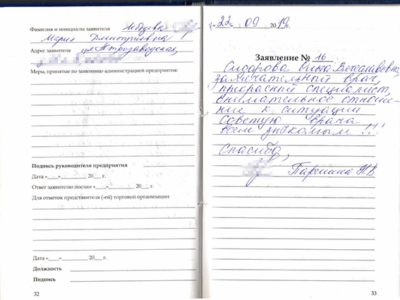 Фамилия и инициалы заявителя
Мария Дмитриевна
Адрес заявителя ул. Петрозаводская,
Меры, принятые по заявлению администрацией предприятия:
Подпись руководителя предприятия
Дата «___» ________ 20___ г.
Ответ заявителю послан «___» ________ 20___ г.
Для отметок представителя (-ей) торговой организации
Дата «___» ________ 20___ г.
Должность
Подпись
32
«22» 09 20 г.
Заявление № 16
Сидорова
замечательный врач,
прекрасный специалист,
внимательное отноше-
ние к ситуации
Советую врача
всем знакомым!!!
Спасибо,
33